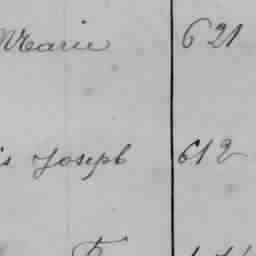 Marie 621
is Joseph 612